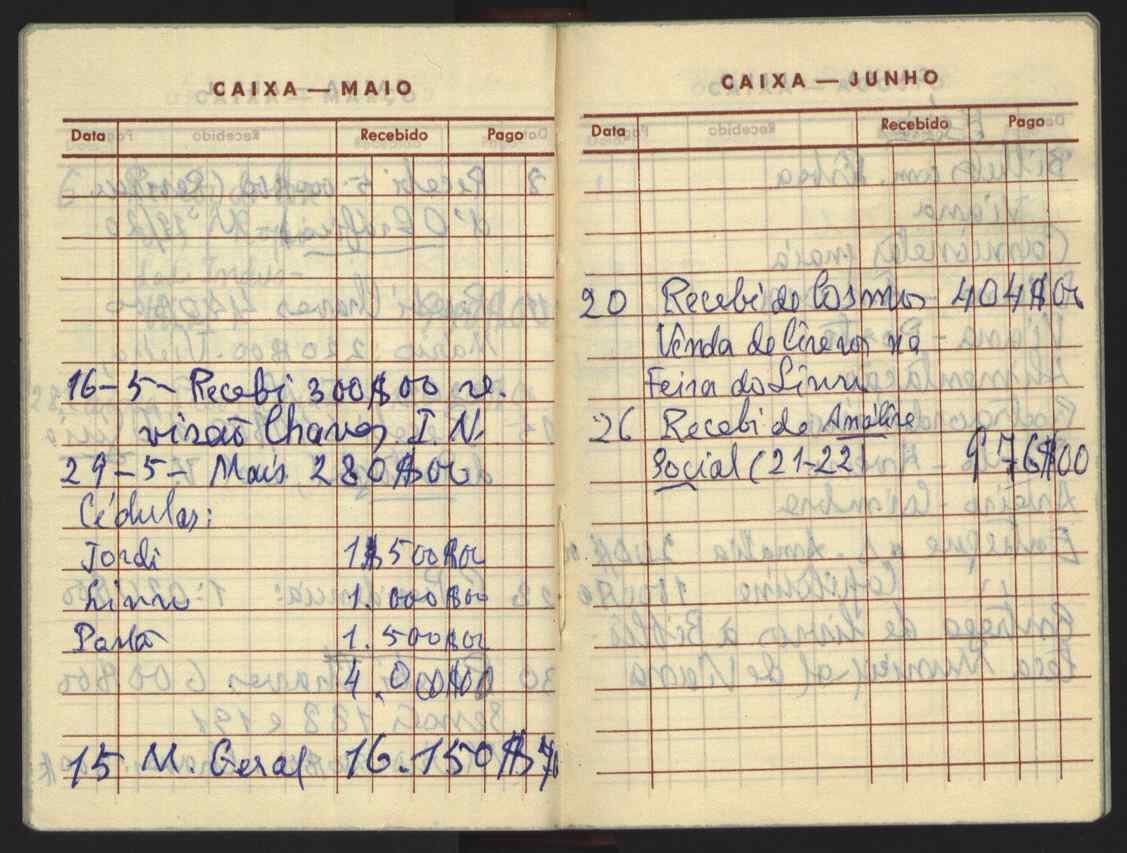 CAIXA — MAIO
Data Recebido Pago
16-5- Recebi 300$00 re.
visão Chaves I N.
29-5- Mais 280$00
Cédulas:
Jordi 1.500$00
Livro 1.000$00
Pastã 1.500$00
4.000$00
15 M. Geral 16.150$
CAIXA — JUNHO
Data Recebido Pago
20 Recebi do Cosmos 404$00
Venda de livros na
Feira do Livro
26 Recebi de Análise
Social (21-22 976$00